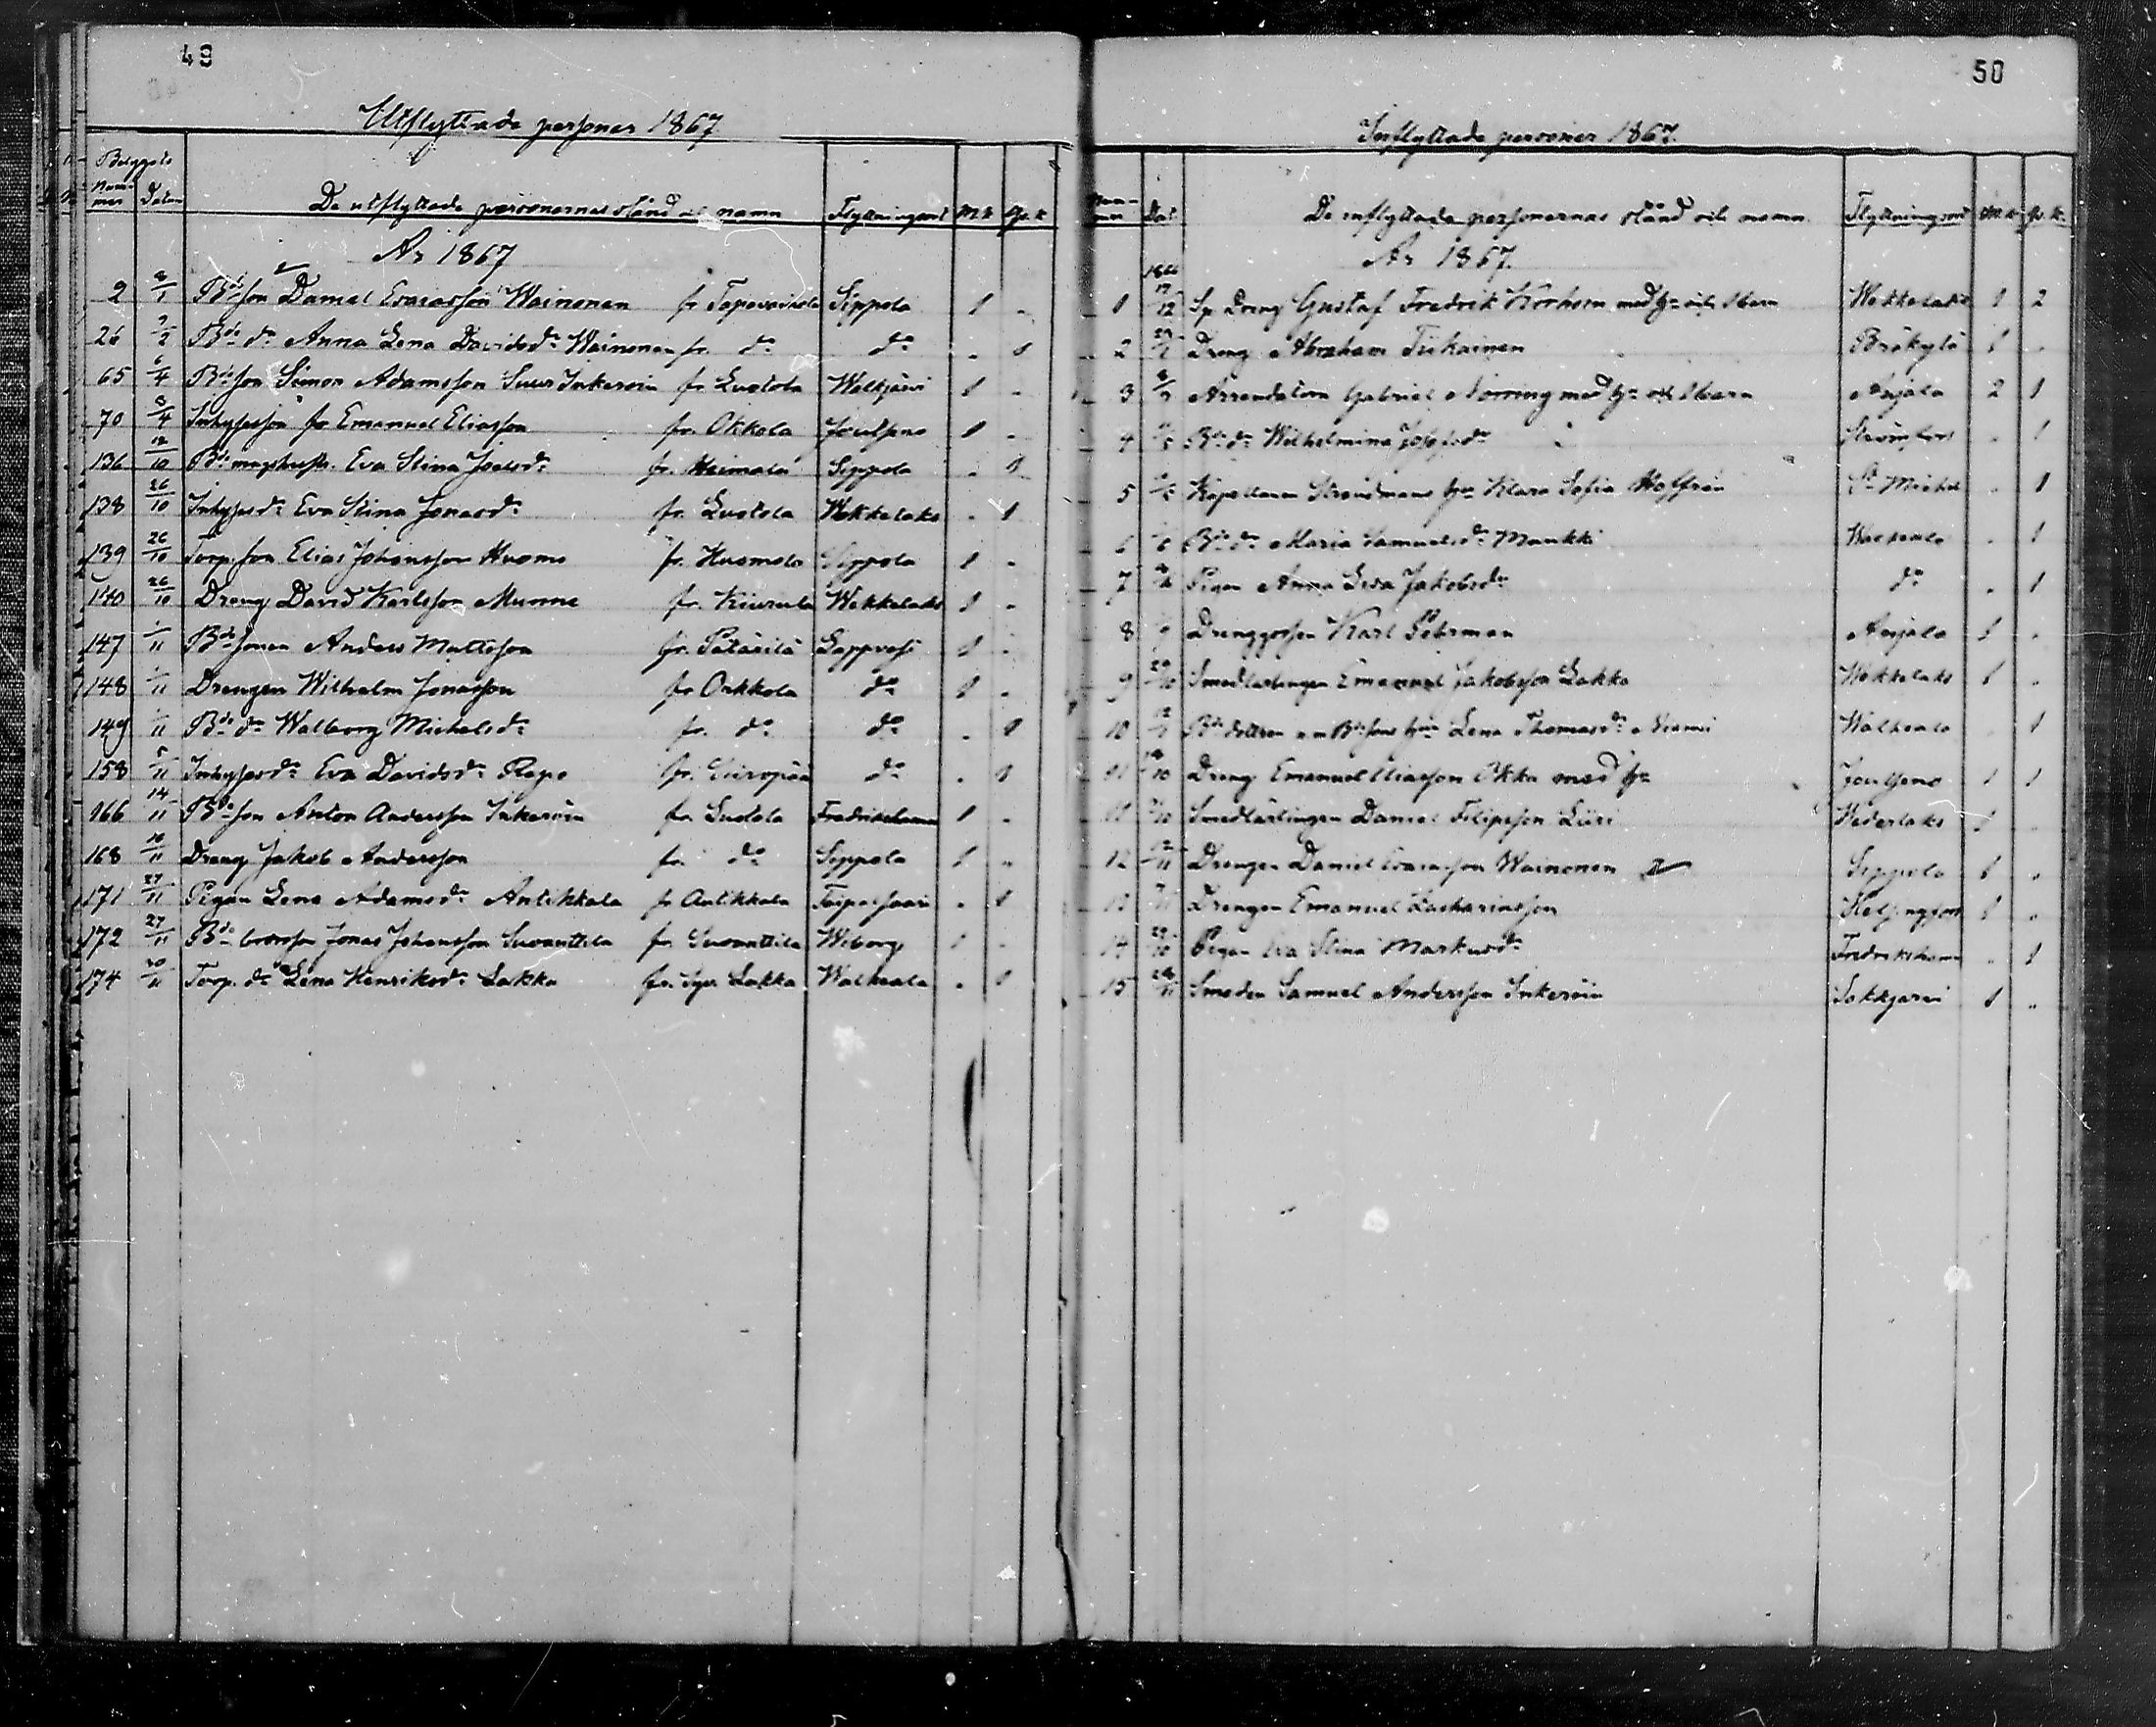 49
Utflyttade personer 1867
Betygets
Num-
mer Datum De utflyttade personernas stånd och namn Flyttningsort M.k. Q.k.
År 1867
2 8/1 Bde son Daniel Esaiasson Wainonen fr Sippola 1 -
26 /2 Bde dr Anna Lena Davidsdr Wainonen fr. do do - 1
65 6/4 Bde son Simon Adamsson Suur Inkeroin fr Luotola Walkjärvi 1 -
70 8/4 Inhyses son Emanuel Eliasson fr. Okkola Joutseno 1 -
136 12/10 Bde Eva Stina Joelsdr fr. Heimala Sippola - 1
138 26/10 Inhysesdr Eva Stina Jonasdr fr. Luotola Wekkelaks - 1
139 26/10 Torp. son Elias Johansson Huomo fr. Huomola Sippola 1 -
140 26/10 Dreng David Karlsson Munne fr. Kiurula Wekkelaks 1 -
147 1/11 Bde sonen Anders Mattsson fr. Lappvesi 1 -
148 1/11 Drengen Wilhelm Jonasson fr Okkola do 1 -
149 1/11 Bde dr Walborg Michelsdr fr. do do - 1
158 5/11 Inhysesdr Eva Davidsdr Repo fr. do - 1
166 14/11 Bde son Anton Andersson Inkeroin fr. Luotola Fredrikshamn 1 -
168 16/11 Dreng Jakob Andersson fr. do Sippola 1 -
171 27/11 Pigan Lena Adamsdr Antikkala fr Antikkala Taipalsaari - 1
172 27/11 Bde brorson Jonas Johansson Suvanttila fr. Suvanttila Wiborg 1 -
174 30/11 Torp. dr Lena Henriksdr Lakka fr. Lakka Walkeala - 1
50
Inflyttade personer 1867.
Num-
mer Dat. De inflyttade personernas stånd och namn Flyttningsort M.k. Q.k.
År 1867.
1866
1 /12 Sp Dreng Gustaf Fredrik Korhoin med hu och barn Wekkelaks 1 2
2 Dreng Abraham Tiihainen Bräkylä 1 -
3 Arrendatorn Gabriel Norring med hu och barn Anjala 2 1
4 Bde dr Wilhelmina Josefsdr - 1
5 Kapellanen Strandmans hu Klara Sofia Hoffrén St Michel - 1
6 Bde dr Maria Samuelsdr Maukki - 1
7 Pigan Anna Lisa Jakobsdr do - 1
8 Drenggossen Karl Pehrman Anjala 1 -
9 Smedlärlingen Emanuel Jakobsson Lakka Wekkelaks 1 -
10 Bde dottren Lena Thomasdr Niemi Walkeala 1
11 /10 Dreng Emanuel Eliasson Okka med hu Joutseno 1 1
11 /10 Smedlärlingen Daniel Filipsson Liiri Wederlaks 1 -
12 12/11 Drengen Daniel Esaiasson Wainonen Sippola 1 -
13 /11 Drengen Emanuel Zachariasson Helsingfors 1 -
14 /10 Pigan Eva Stina Markusdr Fredrikshamn - 1
15 /11 Smeden Samuel Andersson Inkeroin Sakkjärvi 1 -